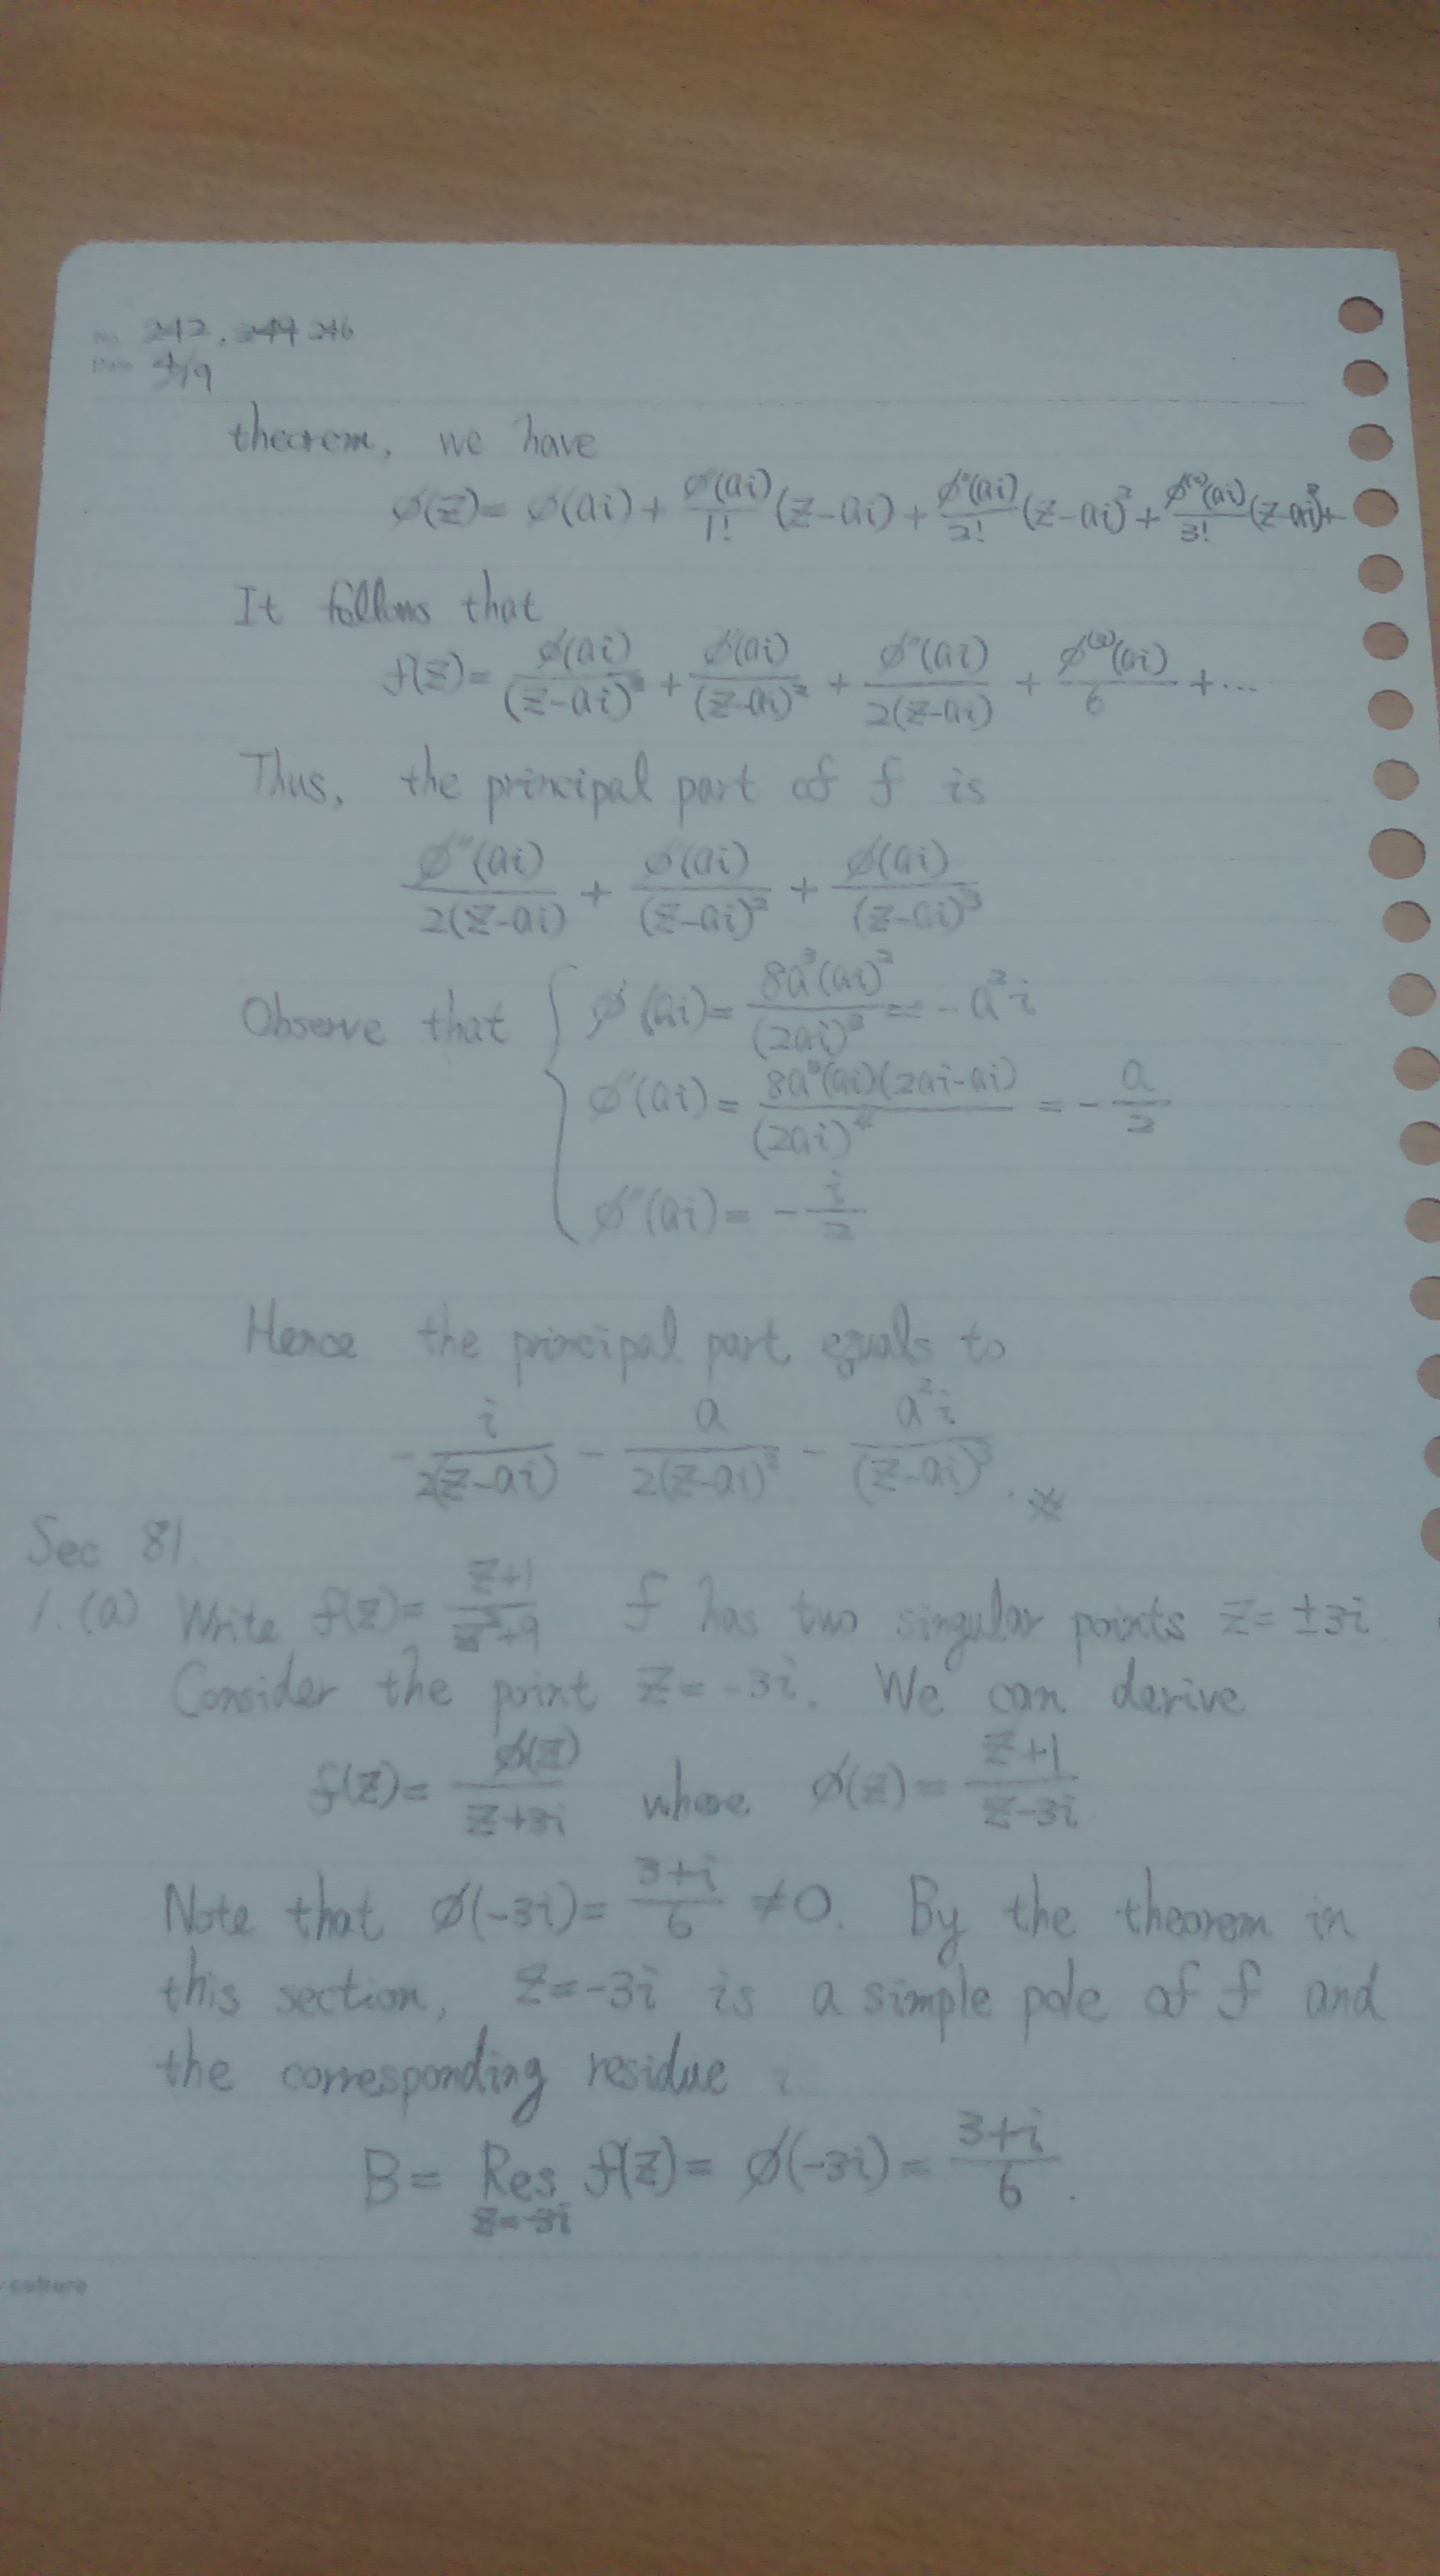 No. 242, 244 246
Date 4/19
theorem, we have
φ(z)= φ(ai) + φ'(ai)/1! (z-ai) + φ''(ai)/2! (z-ai)² + φ⁽³⁾(ai)/3! (z-ai)³+
It follows that
f(z)= φ(ai)/(z-ai)³ + φ'(ai)/(z-ai)² + φ''(ai)/2(z-ai) + φ⁽³⁾(ai)/6 + ...
Thus, the principal part of f is
φ''(ai)/2(z-ai) + φ'(ai)/(z-ai)² + φ(ai)/(z-ai)³
Observe that { φ(ai)= 8a³(ai)²/(2ai)³ = -a²i
φ'(ai)= 8a³(ai)(2ai-ai)/(2ai)⁴ = -a/2
φ''(ai)= -i/2
Hence the principal part equals to
-i/2(z-ai) - a/2(z-ai)² - a²i/(z-ai)³.
Sec 81.
1. (a) Write f(z)= z+1/z²+9 f has two singular points z= ±3i
Consider the point z= -3i. We can derive
f(z)= φ(z)/z+3i where φ(z)= z+1/z-3i
Note that φ(-3i)= 3+i/6 ≠0. By the theorem in
this section, z=-3i is a simple pole of f and
the corresponding residue
B= Res z=-3i f(z)= φ(-3i)= 3+i/6.
culture